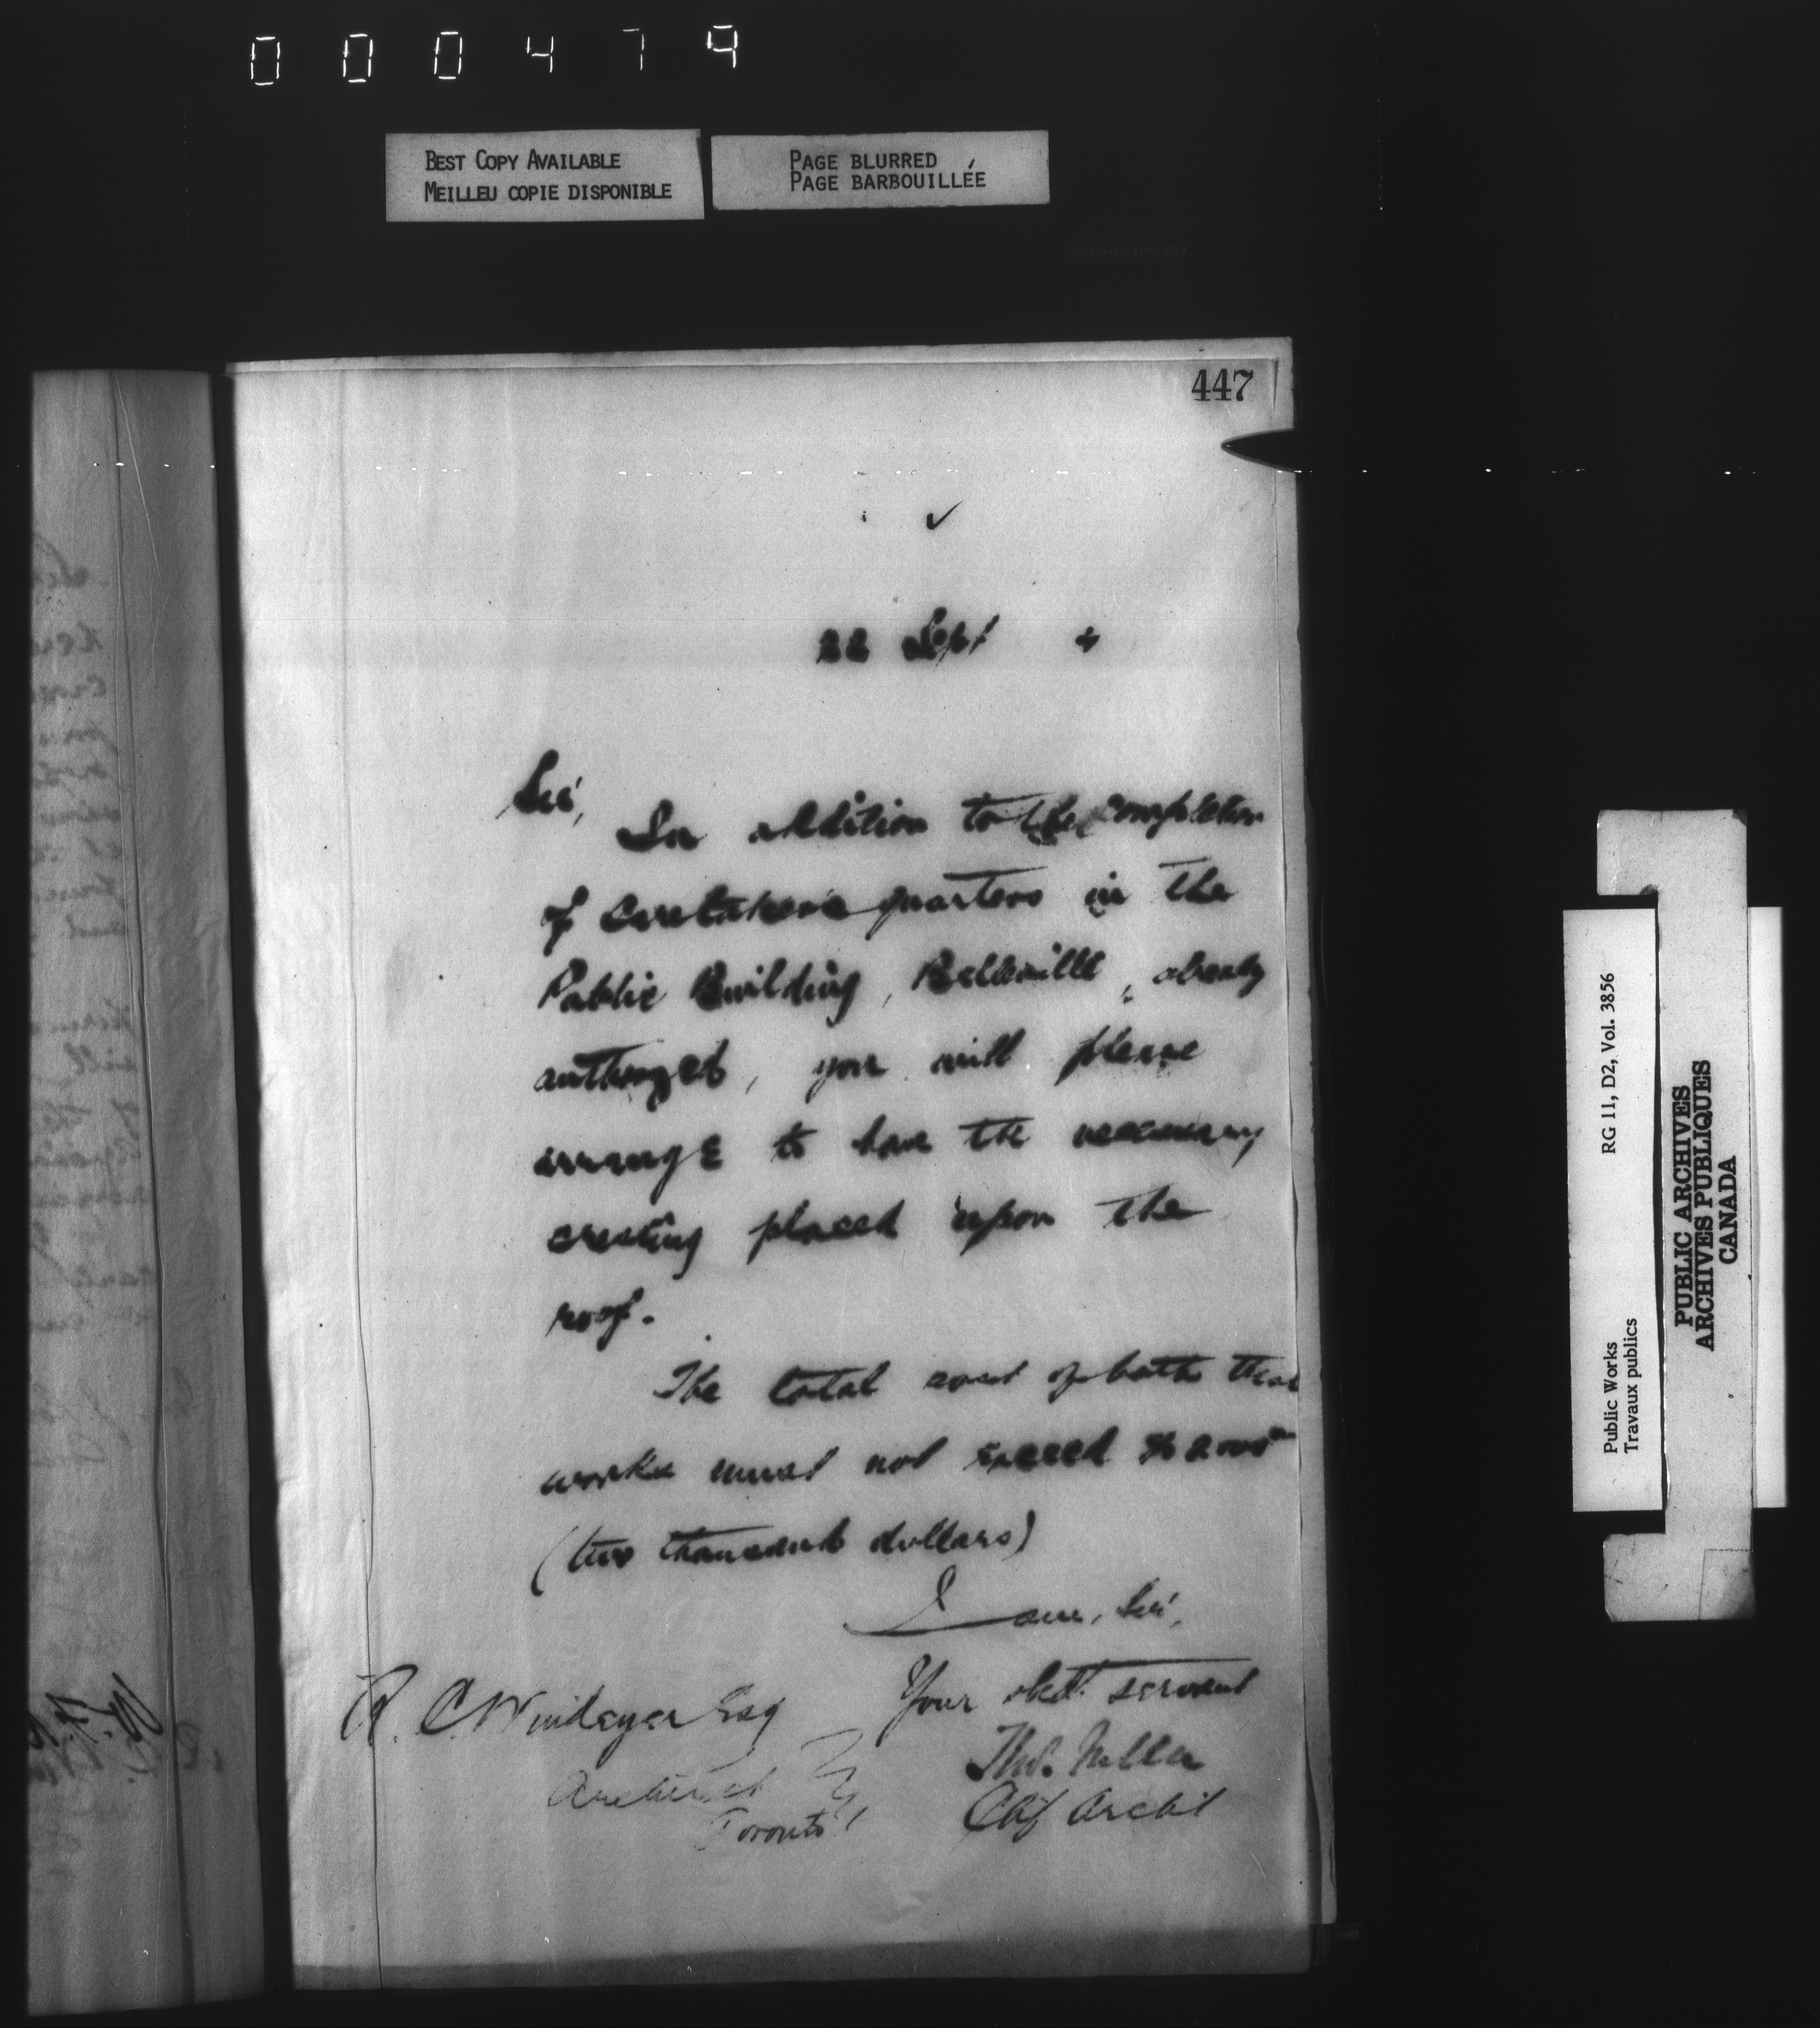 000479
BEST COPY AVAILABLE
MEILLEU COPIE DISPONIBLE
PAGE BLURRED
PAGE BARBOUILLÉE
447
22 Sept 4
Sir,
In addition to the completion
of Caretakers quarters in the
Public Building, Belleville, already
authorized, you will please
arrange to have the necessary
cresting placed upon the
roof.
The total cost of both these
works must not exceed $2000
(two thousand dollars)
I am, Sir,
Your obdt. servant
Thos. Fuller
Chf Archt
R. C. Windeyer Esq
Architect
Toronto
RG 11, D2, Vol. 3856
Public Works
Travaux publics
PUBLIC ARCHIVES
ARCHIVES PUBLIQUES
CANADA